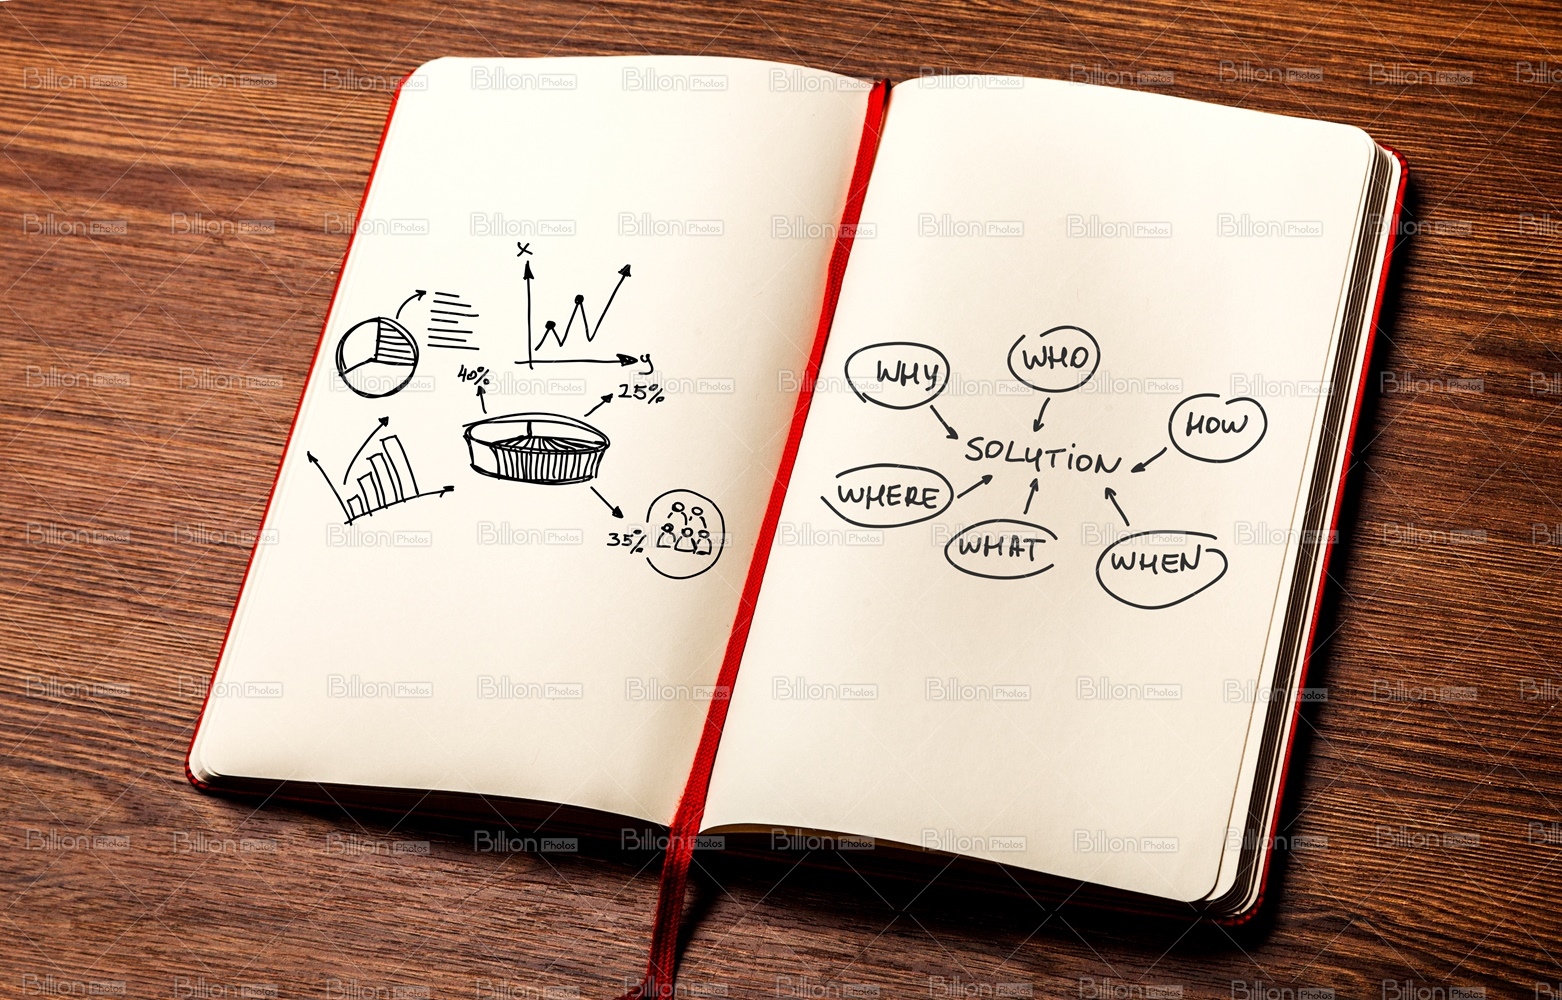 x
y
40%
25%
35%
WHY
WHO
HOW
SOLUTION
WHERE
WHAT
WHEN
Billion Photos